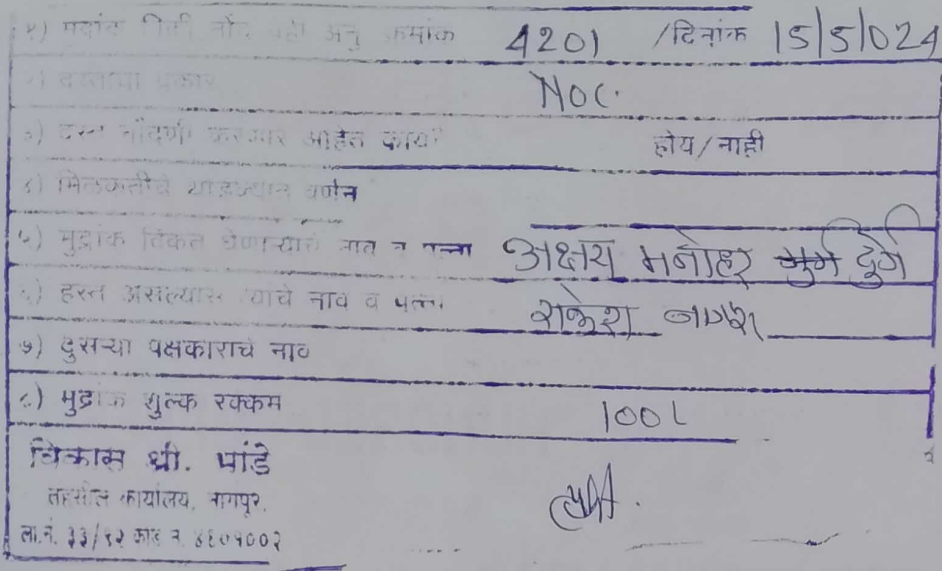 १) मुद्रांक विक्री नोंद वही अनु क्रमांक 4201 /दिनांक 15/5/024
२) दस्ताचा प्रकार NOC.
३) दस्त नोंदणी करणार आहेत काय? होय/नाही
४) मिळकतीचे थोडक्यात वर्णन
५) मुद्रांक विकत घेणाऱ्याचे नाव व पत्ता अक्षय मनोहर दुर्गे
६) हस्ते असल्यास त्यांचे नाव व पत्ता राकेश
७) दुसऱ्या पक्षकाराचे नाव
८) मुद्रांक शुल्क रक्कम 100/
विकास श्री. पांडे
तहसील कार्यालय, नागपूर.
ला.नं. ३३/९२ कोड नं.